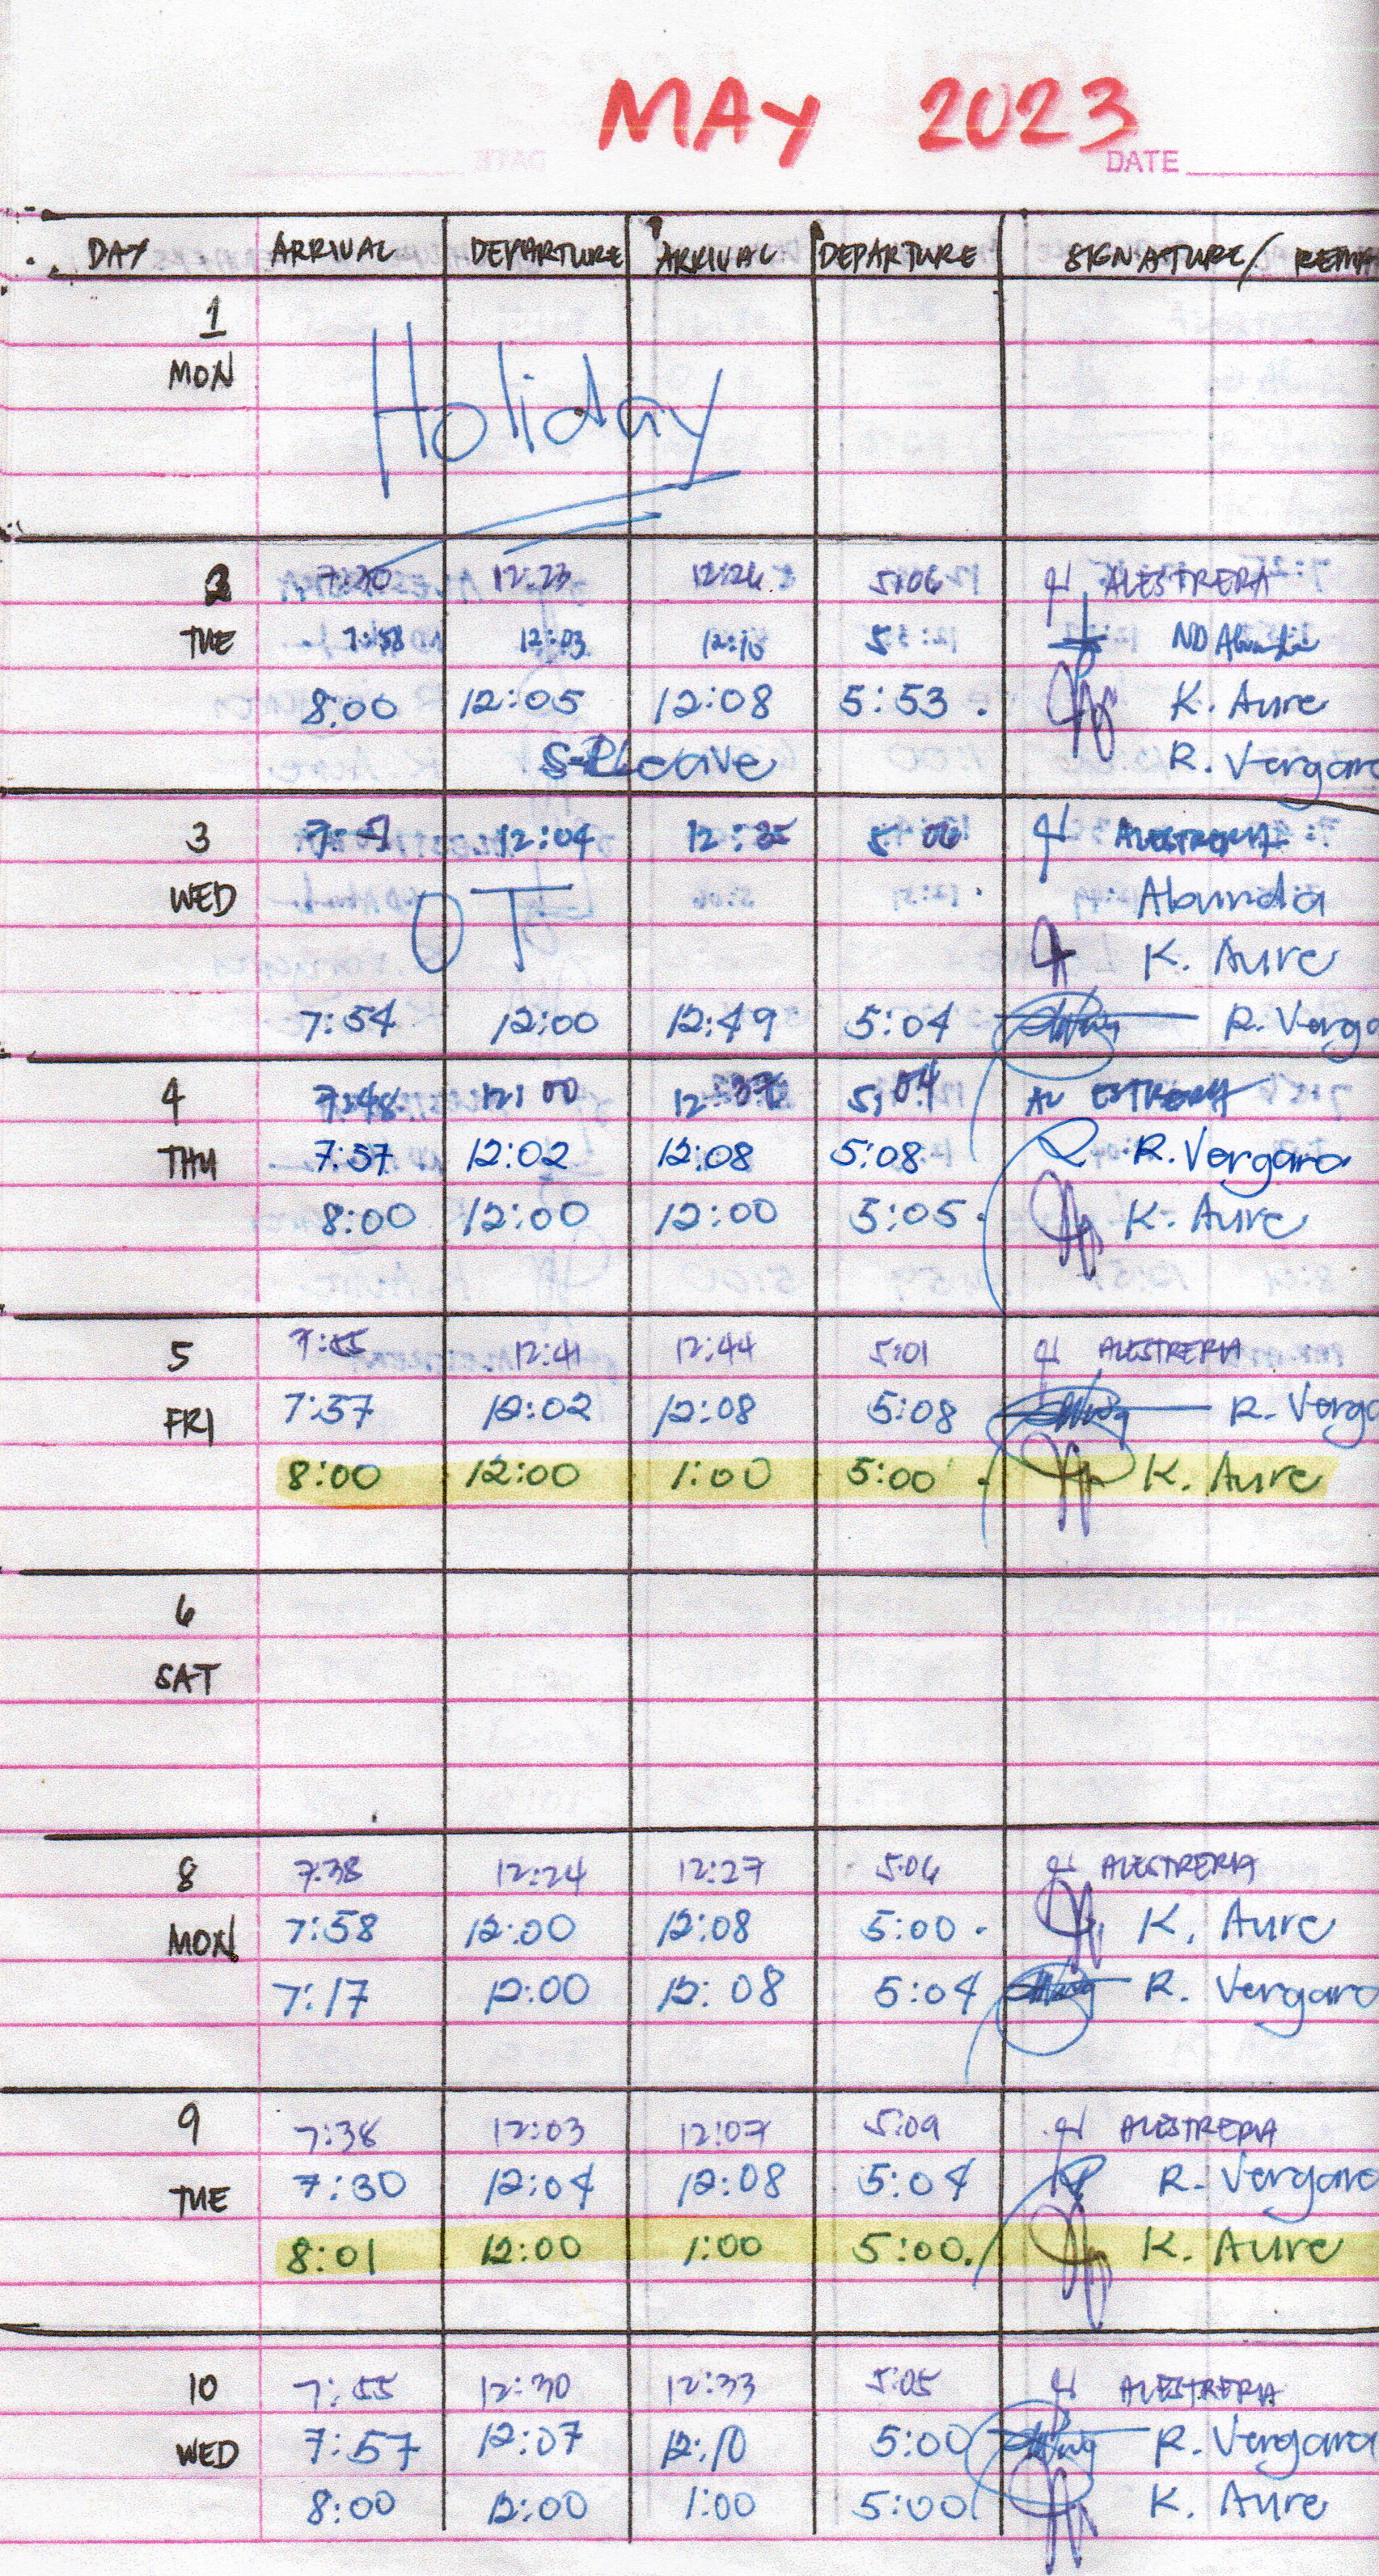 MAY 2023
DATE
DAY ARRIVAL DEPARTURE ARRIVAL DEPARTURE SIGNATURE/
1
MON Holiday
2 7:30 12:23 12:26 5:06 ALESTRERA
TUE 7:58 12:03 12:10 5: ND
8:00 12:05 12:08 5:53 K. Aure
Leave R. Vergara
3 12:04 12:35 5 06 ALESTRERIA
WED OT Abundia
K. Aure
7:54 12:00 12:49 5:04 R. Verga
4 7:48 12:00 12:37 5:04 ALESTRERIA
THU 7:57 12:02 12:08 5:08 R. Vergara
8:00 12:00 12:00 5:05 K. Aure
5 7:55 12:41 12:44 5:01 ALESTRERIA
FRI 7:57 12:02 12:08 5:08 R. Verga
8:00 12:00 1:00 5:00 K. Aure
6
SAT
8 7:38 12:24 12:27 5:06 ALESTRERIA
MON 7:58 12:00 12:08 5:00 K. Aure
7:17 12:00 12:08 5:04 R. Vergara
9 7:38 12:03 12:07 5:09 ALESTRERIA
TUE 7:30 12:04 12:08 5:04 R. Vergara
8:01 12:00 1:00 5:00 K. Aure
10 7:55 12:30 12:33 5:05 ALESTRERIA
WED 7:57 12:07 12:10 5:00 R. Vergara
8:00 12:00 1:00 5:00 K. Aure